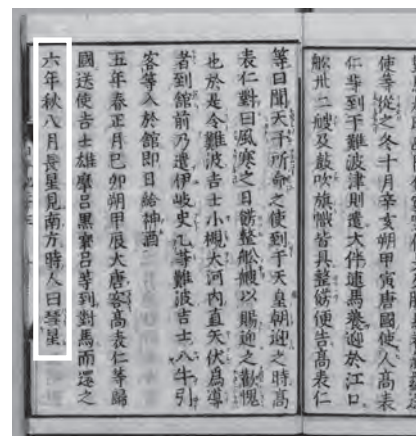 使等從之冬十月辛亥朔甲寅唐國使人高表
仁等到于難波津則遣大伴連馬養迎於江口
舩卅二艘及鼓吹旗幟皆具整餝便告高表仁
等曰聞天子所命之使到于天皇朝迎之時高
表仁對曰風寒之日餝整舩艘以賜迎之歡愧
也於是令難波吉士小槻大河内直矢伏為導
者到館前乃遣伊岐史乙等難波吉士八牛引
客等入於館即日給神酒
五年春正月己卯朔甲辰大唐客高表仁等歸
國送使吉士雄摩呂黒麻呂等到對馬而還之
六年秋八月長星見南方時人曰彗星